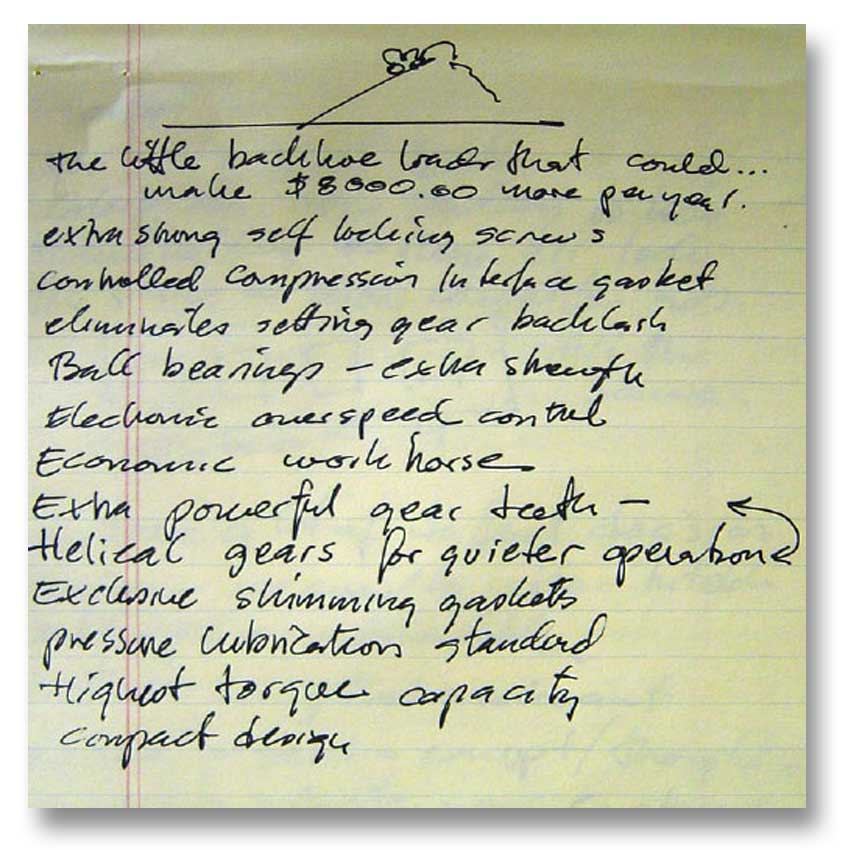 the little backhoe loader that could...
make $8000.00 more per year.
extra strong self locking screws
controlled compression interface gasket
eliminates setting gear backlash
Ball bearings - extra strength
Electronic overspeed control
Economic work horse
Extra powerful gear teeth -
Helical gears for quieter operation
Exclusive shimming gaskets
pressure lubrication standard
Highest torque capacity
compact design